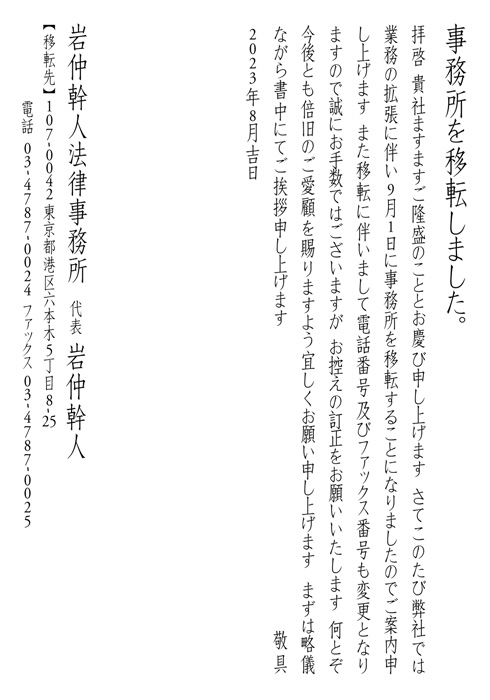 事務所を移転しました。
拝啓 貴社ますますご隆盛のこととお慶び申し上げます さてこのたび弊社では
業務の拡張に伴い9月1日に事務所を移転することになりましたのでご案内申
し上げます また移転に伴いまして電話番号及びファックス番号も変更となり
ますので誠にお手数ではございますが お控えの訂正をお願いいたします 何とぞ
今後とも倍旧のご愛顧を賜りますよう宜しくお願い申し上げます まずは略儀
ながら書中にてご挨拶申し上げます 敬具
2023年8月吉日
岩仲幹人法律事務所 代表 岩仲幹人
【移転先】107-0042東京都港区六本木5丁目8-25
電話 03-4787-0024 ファックス 03-4787-0025